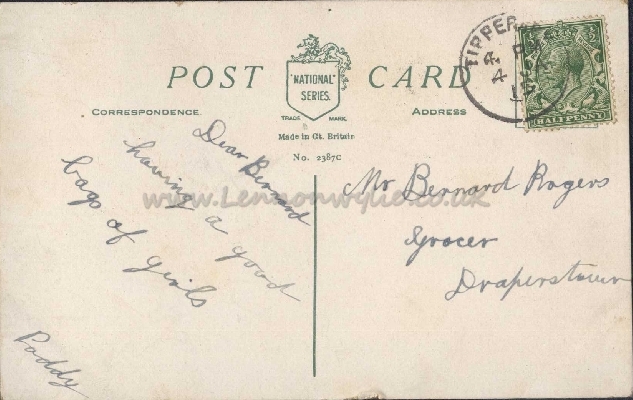 POST CARD
"NATIONAL"
SERIES.
TRADE MARK.
CORRESPONDENCE.
ADDRESS
Made in Gt. Britain
No. 2387C
TIPPER
4
HALFPENNY
Dear Bernard
having a good
bags of girls
Paddy
Mr Bernard Rogers
Grocer
Draperstown
www.Lennonwylie.co.uk